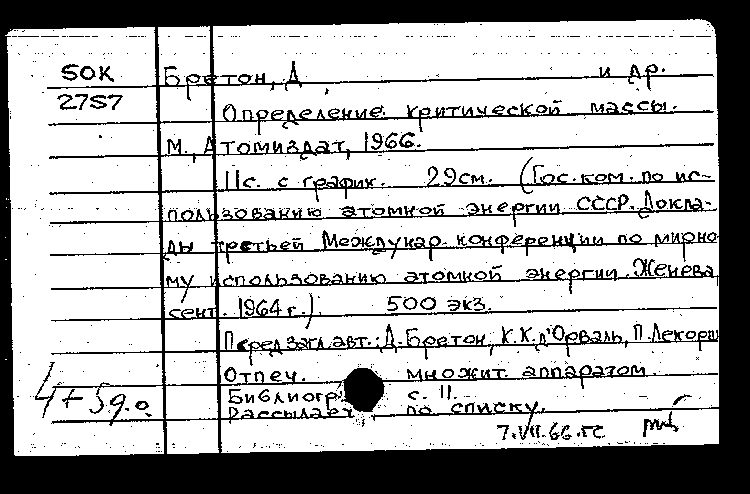 50К Бретон, Д и др.
2757 Определение критической массы.
М., Атомиздат, 1966.
11с. с график. 29см. (Гос.ком. по ис-
пользованию атомной энергии СССР. Докла-
ды третьей Междунар. конференции по мирно
му использованию атомной энергии. Женева,
сент. 1964 г.). 500 экз.
Перед загл. авт.: Д. Бретон, К.К.д'Орваль, П. Лекорш
Отпеч. множит. аппаратом.
Библиогр. с. 11.
Рассылает. по списку.
4+5д.о
7.VII.66.гс